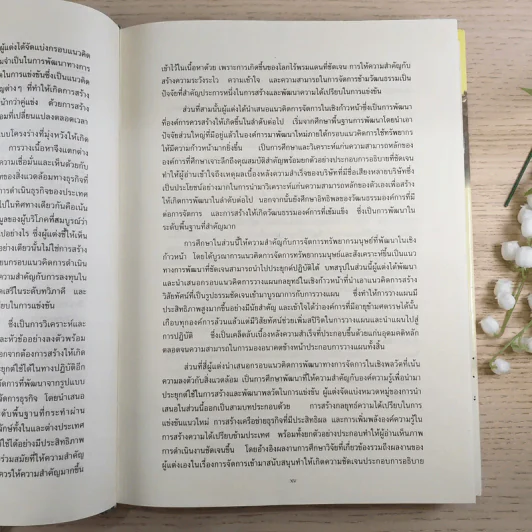 ผู้แต่งได้จัดแบ่งกรอบแนวคิด
จำเป็นในการพัฒนาทางการ
ในการแข่งขันซึ่งเป็นแนวคิด
ต่างๆ ที่ทำให้เกิดการสร้าง
กว่าคู่แข่ง ด้วยการสร้าง
ที่เปลี่ยนแปลงตลอดเวลา
แบบโครงร่างที่มุ่งหวังให้เกิด
การวางเนื้อหาจึงแตกต่าง
ความเชื่อมั่นและเห็นด้วยกับ
ของสิ่งแวดล้อมทางธุรกิจที่
การดำเนินธุรกิจของประเทศ
ไปในทิศทางเดียวกันคือเน้น
ของผู้บริโภคที่สมบูรณ์ว่า
อย่างไร ซึ่งผู้แต่งชี้ให้เห็น
อย่างเดียวนั้นไม่ใช่การสร้าง
กรอบแนวคิดการสร้าง
ความสำคัญกับการลงทุนใน
เสรีในระดับทวิภาคี และ
ในการแข่งขัน
ซึ่งเป็นการวิเคราะห์และ
และหัวข้ออย่างลงตัวพร้อม
จากต้องการสร้างให้เกิด
ใช้ได้ในทางปฏิบัติอีก
จัดการที่พัฒนาจากรูปแบบ
การธุรกิจ โดยนำเสนอ
พื้นฐานที่กระทำผ่าน
ทั้งในและต่างประเทศ
ใช้ได้อย่างมีประสิทธิภาพ
สมัยที่ให้ความสำคัญว่า
ควรให้ความสำคัญมากขึ้น
เข้าไว้ในเนื้อหาด้วย เพราะการเกิดขึ้นของโลกไร้พรมแดนที่ชัดเจน การให้ความสำคัญกับ
สร้างความระวังระไว ความเข้าใจ และความสามารถในการจัดการข้ามวัฒนธรรมเป็น
ปัจจัยที่สำคัญประการหนึ่งในการสร้างและพัฒนาความได้เปรียบในการแข่งขัน
ส่วนที่สามนั้นผู้แต่งได้นำเสนอแนวคิดการจัดการในเชิงก้าวหน้า ซึ่งเป็นการพัฒนา
ที่องค์การควรสร้างให้เกิดขึ้นในลำดับต่อไป เริ่มจากศึกษาพื้นฐานการพัฒนาโดยนำเอา
ปัจจัยส่วนใหญ่ที่มีอยู่แล้วในองค์การมาพัฒนาใหม่ภายใต้กรอบแนวคิดการใช้ทรัพยากร
ให้มีความก้าวหน้ามากยิ่งขึ้น เป็นการศึกษาและวิเคราะห์แก่นความสามารถหลักของ
องค์การที่ศึกษาเจาะลึกถึงคุณสมบัติสำคัญพร้อมยกตัวอย่างประกอบการอธิบายที่ชัดเจน
ทำให้ผู้อ่านเข้าใจถึงเหตุผลเบื้องหลังความสำเร็จของบริษัทที่มีชื่อเสียงหลายบริษัทซึ่ง
เป็นประโยชน์อย่างมากในการนำมาวิเคราะห์แก่นความสามารถหลักของตัวเองเพื่อสร้าง
ให้เกิดการพัฒนาในลำดับต่อไป นอกจากนั้นยังศึกษาอิทธิพลของวัฒนธรรมองค์การที่มี
ต่อการจัดการ และการสร้างให้เกิดวัฒนธรรมองค์การที่เข้มแข็ง ซึ่งเป็นการพัฒนาใน
ระดับพื้นฐานที่สำคัญมาก
การศึกษาในส่วนนี้ให้ความสำคัญกับการจัดการทรัพยากรมนุษย์ที่พัฒนาในเชิง
ก้าวหน้า โดยได้บูรณาการแนวคิดการจัดการทรัพยากรมนุษย์และสังเคราะห์ขึ้นเป็นแนว
ทางการพัฒนาที่ชัดเจนสามารถนำไปประยุกต์ปฏิบัติได้ บทสรุปในส่วนนี้ผู้แต่งได้พัฒนา
และนำเสนอกรอบแนวคิดการวางแผนกลยุทธ์ในเชิงก้าวหน้าที่นำเอาแนวคิดการสร้าง
วิสัยทัศน์ที่เป็นรูปธรรมชัดเจนเข้ามาบูรณาการกับการวางแผน ซึ่งทำให้การวางแผนมี
ประสิทธิภาพสูงมากขึ้นอย่างมีนัยสำคัญ และเข้าใจได้ว่าองค์การที่มีอายุข้ามศตวรรษได้นั้น
เกือบทุกองค์การล้วนแล้วแต่มีวิสัยทัศน์ช่วยเพิ่มสปิริตในการวางแผนและนำแผนไปสู่
การปฏิบัติ ซึ่งเป็นเคล็ดลับเบื้องหลังความสำเร็จที่ประกอบขึ้นด้วยแก่นอุดมคติหลัก
ตลอดจนความสามารถในการมองอนาคตข้างหน้าประกอบการวางแผนทั้งสิ้น
ส่วนที่สี่ผู้แต่งนำเสนอกรอบแนวคิดการพัฒนาทางการจัดการในเชิงพลวัตที่เน้น
ความลงตัวกับสิ่งแวดล้อม เป็นการศึกษาพัฒนาที่ให้ความสำคัญกับองค์ความรู้เพื่อนำมา
ประยุกต์ใช้ในการสร้างและพัฒนาพลวัตในการแข่งขัน ผู้แต่งจัดแบ่งหมวดหมู่ของการนำ
เสนอในส่วนนี้ออกเป็นสามบทประกอบด้วย การสร้างกลยุทธ์ความได้เปรียบในการ
แข่งขันแนวใหม่ การสร้างเครือข่ายธุรกิจที่มีประสิทธิผล และการเพิ่มพลังองค์ความรู้ใน
การสร้างความได้เปรียบข้ามประเทศ พร้อมทั้งยกตัวอย่างประกอบทำให้ผู้อ่านเห็นภาพ
การดำเนินงานชัดเจนขึ้น โดยอ้างอิงผลงานการศึกษาวิจัยที่เกี่ยวข้องรวมถึงผลงานของ
ผู้แต่งเองในเรื่องการจัดการเข้ามาสนับสนุนทำให้เกิดความชัดเจนประกอบการอธิบาย